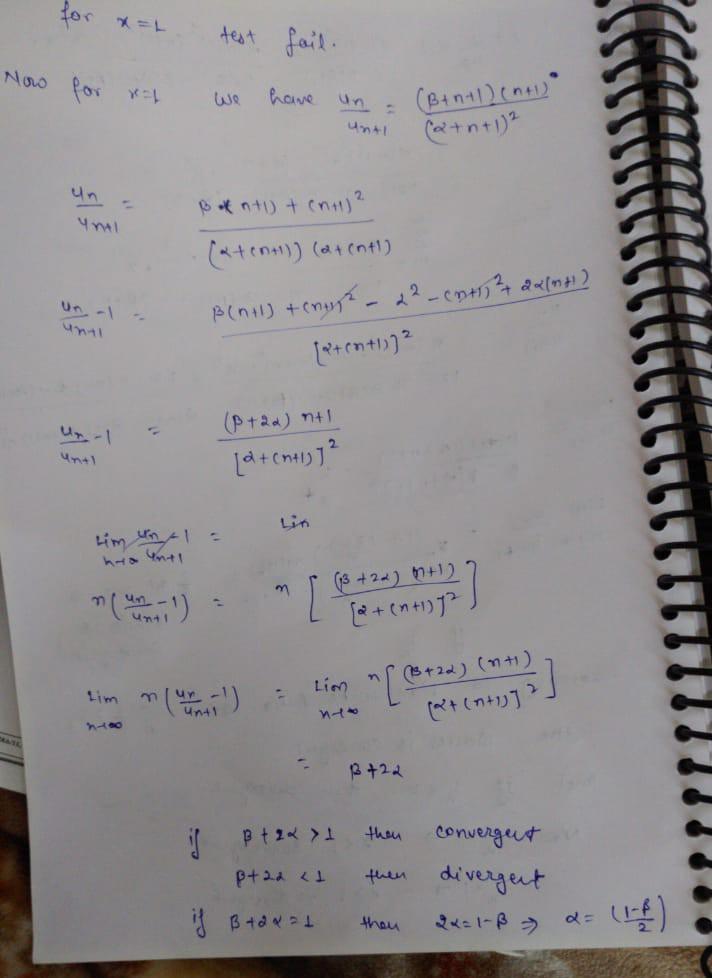 for x=1 test fail.
Now for x=1 we have un/un+1 = (β+n+1)(n+1)/(α+n+1)²
un/un+1 = β(n+1) + (n+1)²/(α+(n+1))(α+(n+1)
un/un+1 -1 = β(n+1) + (n+1)² - α² - (n+1)² + 2α(n+1)/[α+(n+1)]²
un/un+1 -1 = (β+2α) n+1/[α+(n+1)]²
Lim n→∞ un/un+1 -1 = Lin
n(un/un+1 -1) = n[(β+2α)(n+1)/[α+(n+1)]²]
Lim n→∞ n(un/un+1 -1) = Lim n→∞ n[(β+2α)(n+1)/[α+(n+1)]²]
= β+2α
if β+2α >1 then convergent
β+2α <1 then divergent
if β+2α=1 then 2α=1-β ⇒ α= (1-β/2)